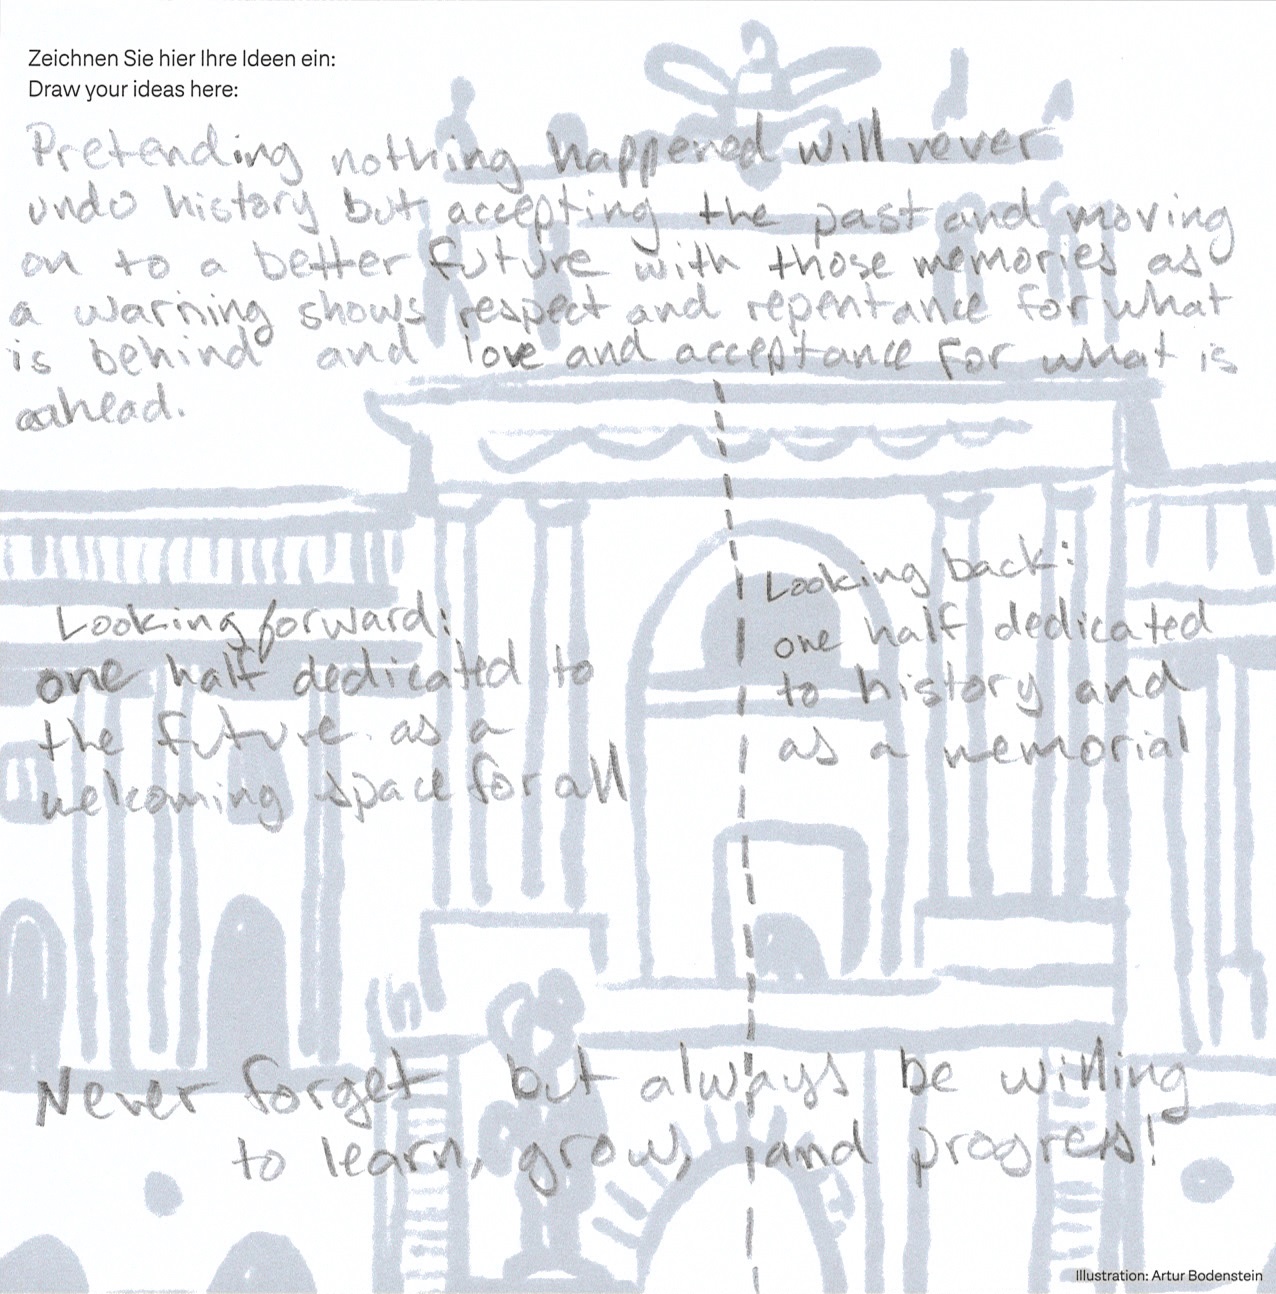 Zeichnen Sie hier Ihre Ideen ein:
Draw your ideas here:
Pretending nothing happened will never
undo history but accepting the past and moving
on to a better future with those memories as
a warning shows respect and repentance for what
is behind and love and acceptance for what is
ahead.
Looking forward:
one half dedicated to
the future as a
welcoming space for all
Looking back:
one half dedicated
to history and
as a memorial
Never forget but always be willing
to learn, grow, and progress!
Illustration: Artur Bodenstein